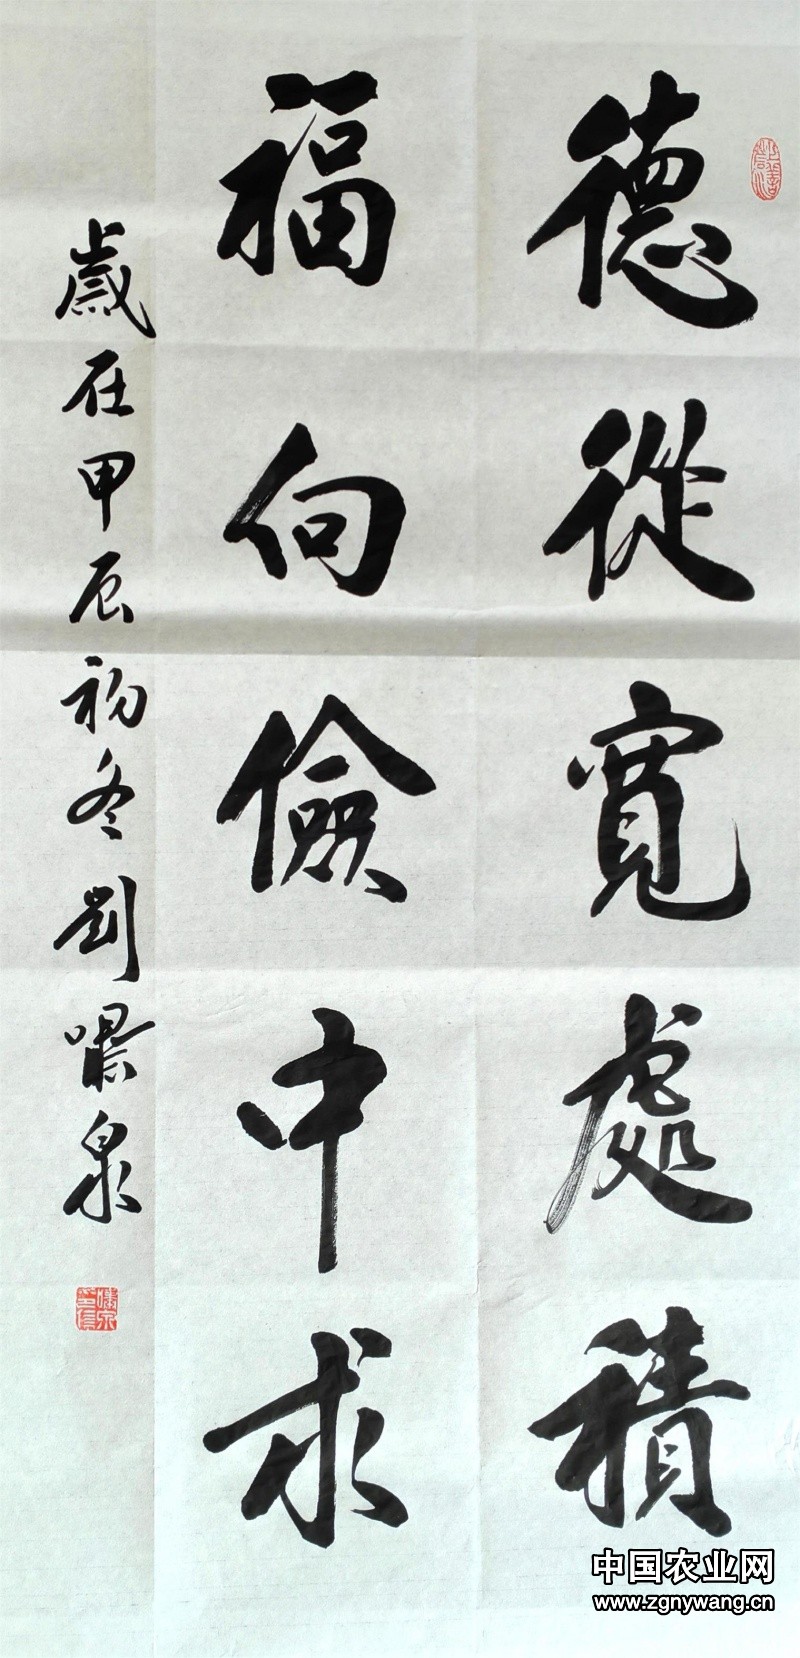 德從寬處積
福向儉中求
歲在甲辰初冬劉嘯泉
上善若水
嘯泉之印
中国农业网
www.zgnywang.cn